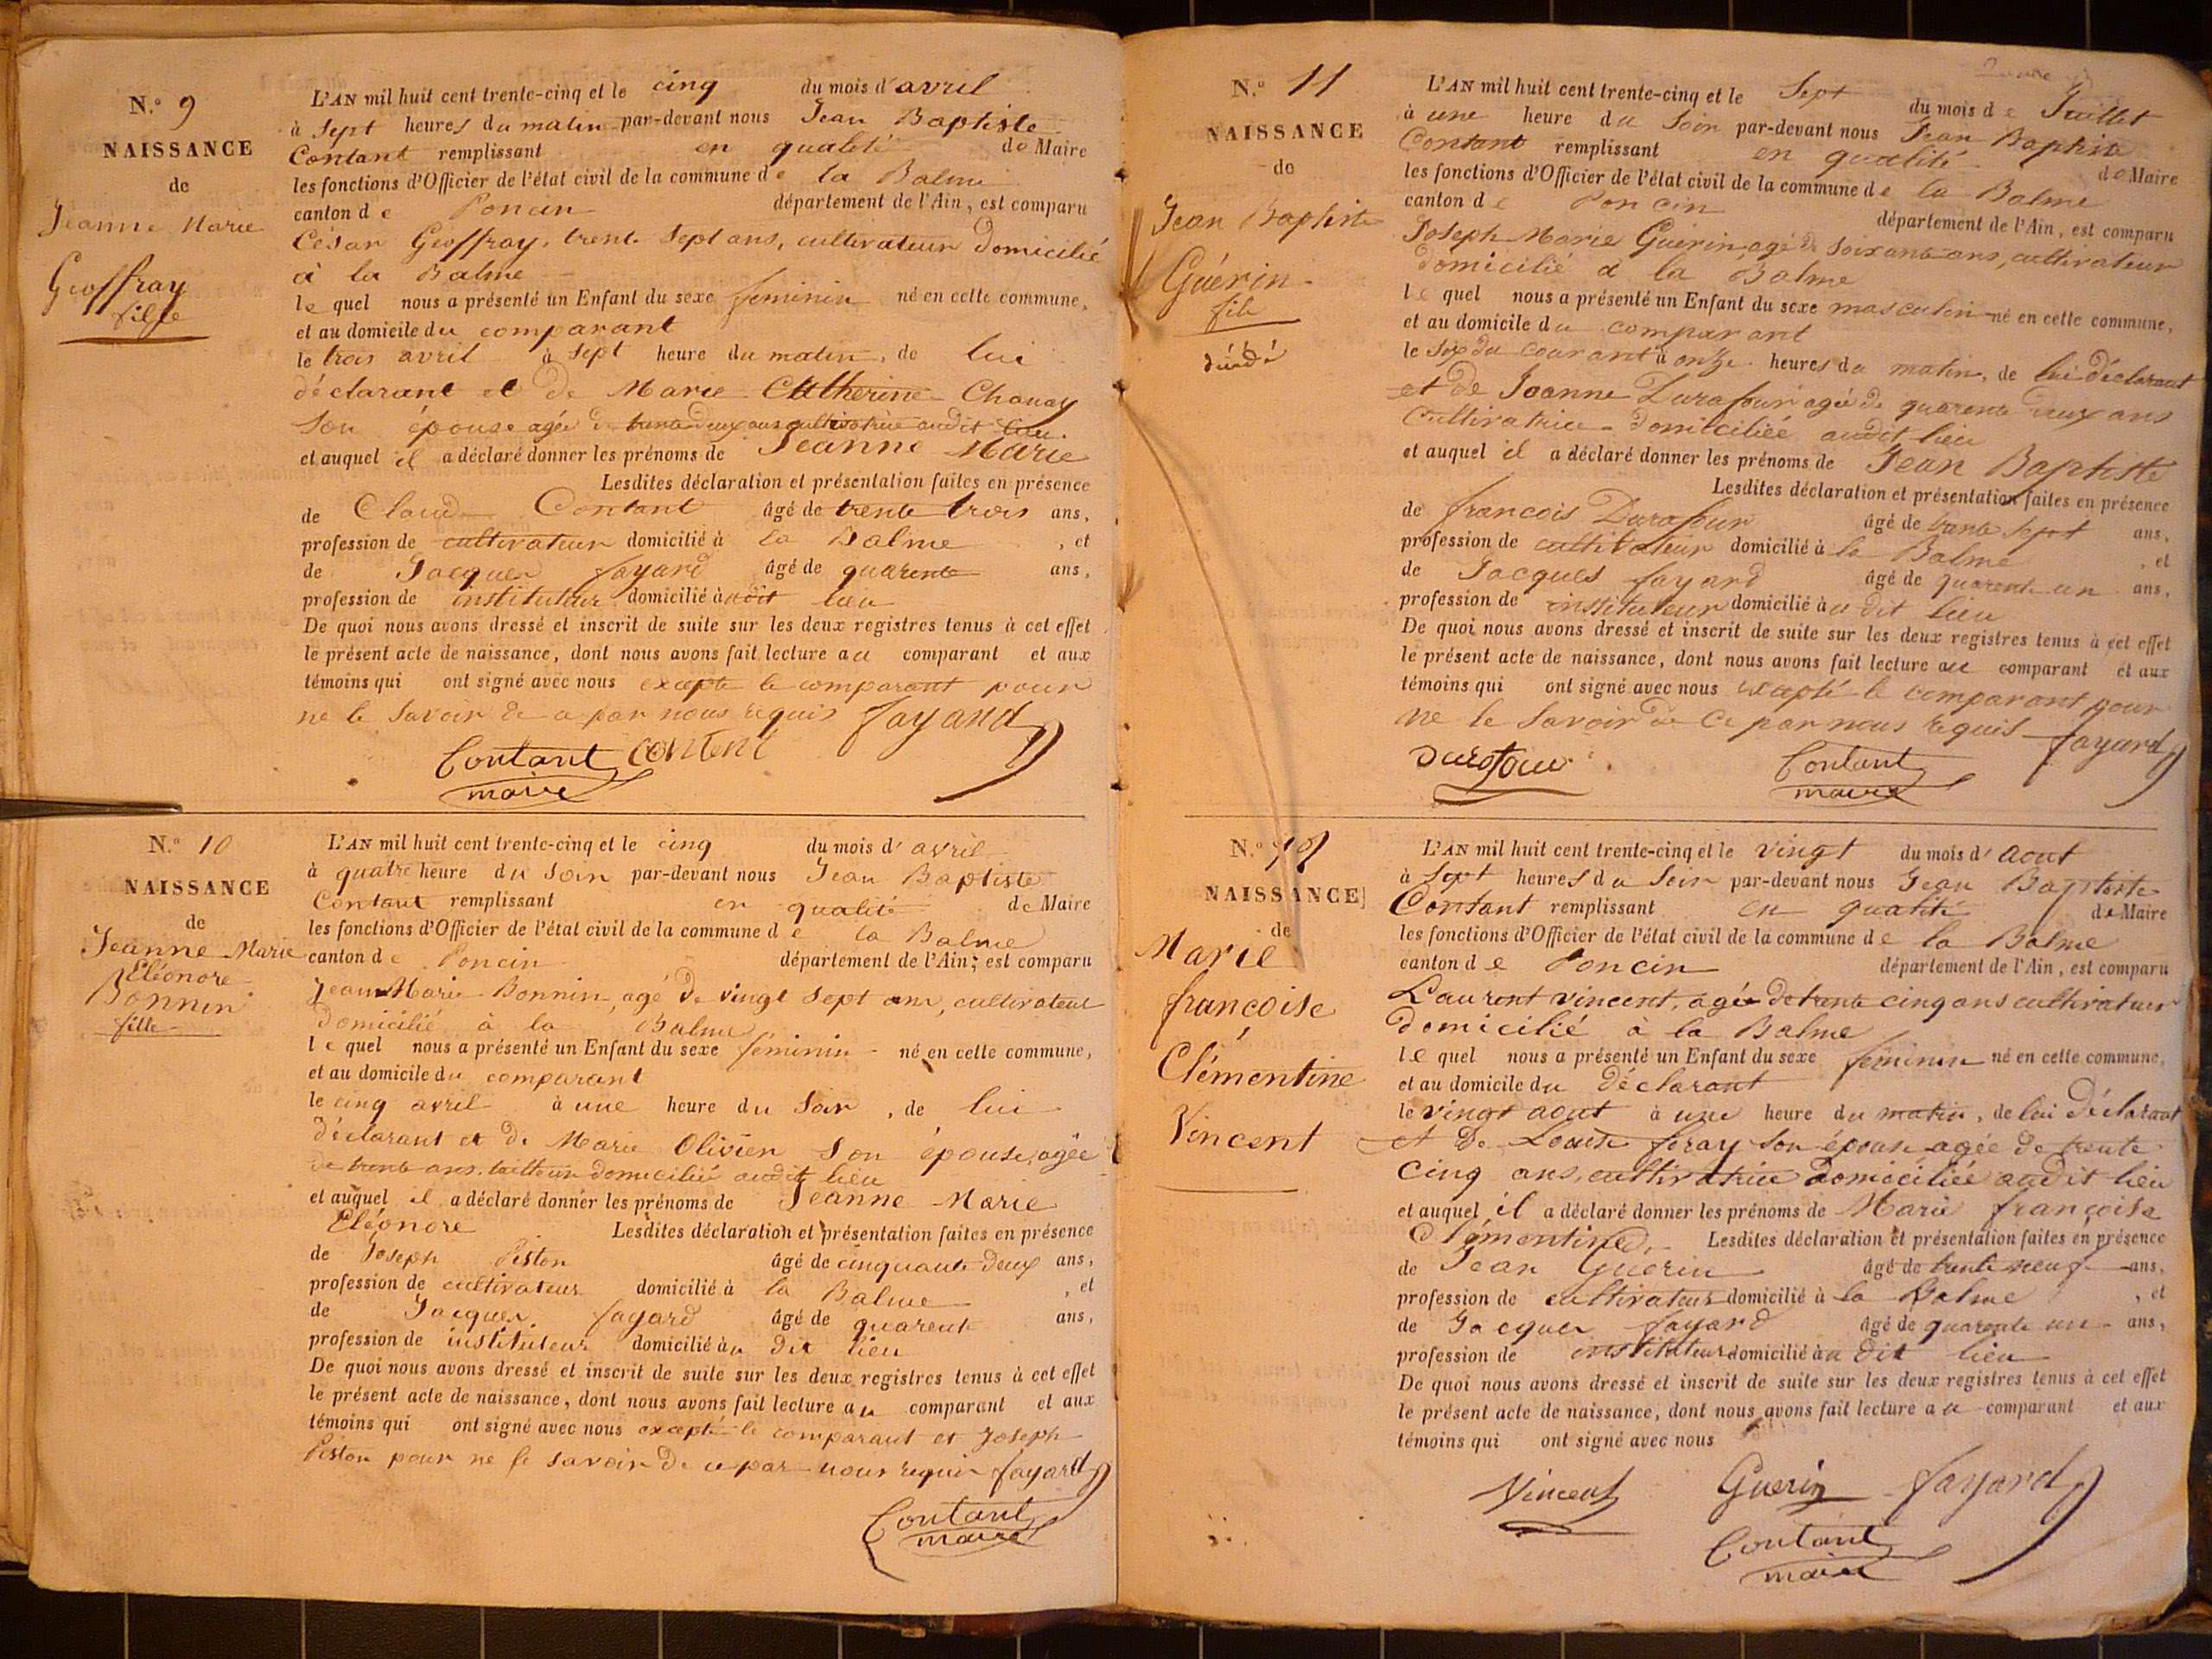 N.o 9
NAISSANCE
de
Jeanne Marie
Geoffray
fille
L'AN mil huit cent trente-cinq et le cinq du mois d'avril
à Sept heures du matin par-devant nous Jean Baptiste
Contant remplissant en qualité de Maire
les fonctions d'Officier de l'état civil de la commune de la Balme
canton de Poncin département de l'Ain, est comparu
César Geoffray, trente Sept ans, cultivateur domicilié
à la Balme
le quel nous a présenté un Enfant du sexe feminin né en cette commune,
et au domicile du comparant
le trois avril à Sept heure du matin, de lui
déclarant et de Marie Catherine Chanay
Son épouse agée de trente deux ans cultivatrice audit lieu.
et auquel il a déclaré donner les prénoms de Jeanne Marie
Lesdites déclaration et présentation faites en présence
de Claude Contant âgé de trente trois ans,
profession de cultivateur domicilié à la Balme , et
de Jacques fayard âgé de quarente ans,
profession de instituteur domicilié audit lieu
De quoi nous avons dressé et inscrit de suite sur les deux registres tenus à cet effet
le présent acte de naissance, dont nous avons fait lecture au comparant et aux
témoins qui ont signé avec nous excepté le comparant pour
ne le Savoir de ce par nous requis fayard
Contant content
maire
N.o 10
NAISSANCE
de
Jeanne Marie
Eléonore
Bonnin
fille
L'AN mil huit cent trente-cinq et le cinq du mois d'avril
à quatre heure du Soir par-devant nous Jean Baptiste
Contant remplissant en qualité de Maire
les fonctions d'Officier de l'état civil de la commune de la Balme
canton de Poncin département de l'Ain; est comparu
Jean Marie Bonnin, agé de vingt sept ans, cultivateur
domicilié à la Balme
le quel nous a présenté un Enfant du sexe féminin né en cette commune,
et au domicile du comparant
le cinq avril à une heure du Soir, de lui
déclarant et de Marie Olivier Son épouse, agée
de trente ans, domiciliée audit lieu
et auquel il a déclaré donner les prénoms de Jeanne Marie
Eléonore Lesdites déclaration et présentation faites en présence
de Joseph Piston âgé de cinquante deux ans,
profession de cultivateur domicilié à la Balme , et
de Jacques fayard âgé de quarente ans,
profession de instituteur domicilié au dit lieu
De quoi nous avons dressé et inscrit de suite sur les deux registres tenus à cet effet
le présent acte de naissance, dont nous avons fait lecture au comparant et aux
témoins qui ont signé avec nous excepté le comparant et Joseph
Piston pour ne le savoir de ce par nous requis fayard
Contant
maire
N.o 11
NAISSANCE
de
Jean Baptiste
Guérin
fils
décédé
L'AN mil huit cent trente-cinq et le Sept du mois de Juillet
à une heure du Soir par-devant nous Jean Baptiste
Contant remplissant en qualité de Maire
les fonctions d'Officier de l'état civil de la commune de la Balme
canton de Poncin département de l'Ain, est comparu
Joseph Marie Guérin, agé de soixante ans, cultivateur
domicilié à la Balme
le quel nous a présenté un Enfant du sexe masculin né en cette commune,
et au domicile du comparant
le Six du courant à onze heures du matin, de lui déclarant
et de Joanne Durafour agée de quarente deux ans
Cultivatrice domiciliée audit lieu
et auquel il a déclaré donner les prénoms de Jean Baptiste
Lesdites déclaration et présentation faites en présence
de françois Durafour âgé de trente sept ans,
profession de cultivateur domicilié à la Balme , et
de Jacques fayard âgé de quarente un ans,
profession de instituteur domicilié au dit lieu
De quoi nous avons dressé et inscrit de suite sur les deux registres tenus à cet effet
le présent acte de naissance, dont nous avons fait lecture au comparant et aux
témoins qui ont signé avec nous excepté le comparant pour
ne le Savoir de ce par nous requis fayard
Durafour Contant
maire
N.o 12
NAISSANCE
de
Marie
françoise
Clémentine
Vincent
L'AN mil huit cent trente-cinq et le vingt du mois d'aout
à Sept heures du Soir par-devant nous Jean Baptiste
Contant remplissant en qualité de Maire
les fonctions d'Officier de l'état civil de la commune de la Balme
canton de Poncin département de l'Ain, est comparu
Laurent vincent, agée de trente cinq ans cultivateur
domicilié à la Balme
le quel nous a présenté un Enfant du sexe feminin né en cette commune,
et au domicile du déclarant
le vingt aout à une heure du matin, de lui déclarant
et de Louise foray Son épouse agée de trente
cinq ans, cultivatrice domiciliée audit lieu
et auquel il a déclaré donner les prénoms de Marie françoise
Clémentine, Lesdites déclaration et présentation faites en présence
de Jean Guerin âgé de trente neuf ans,
profession de cultivateur domicilié à la Balme , et
de Jacques fayard âgé de quarente un ans,
profession de instituteur domicilié au dit lieu
De quoi nous avons dressé et inscrit de suite sur les deux registres tenus à cet effet
le présent acte de naissance, dont nous avons fait lecture au comparant et aux
témoins qui ont signé avec nous
Vincent Guerin fayard
Contant
maire